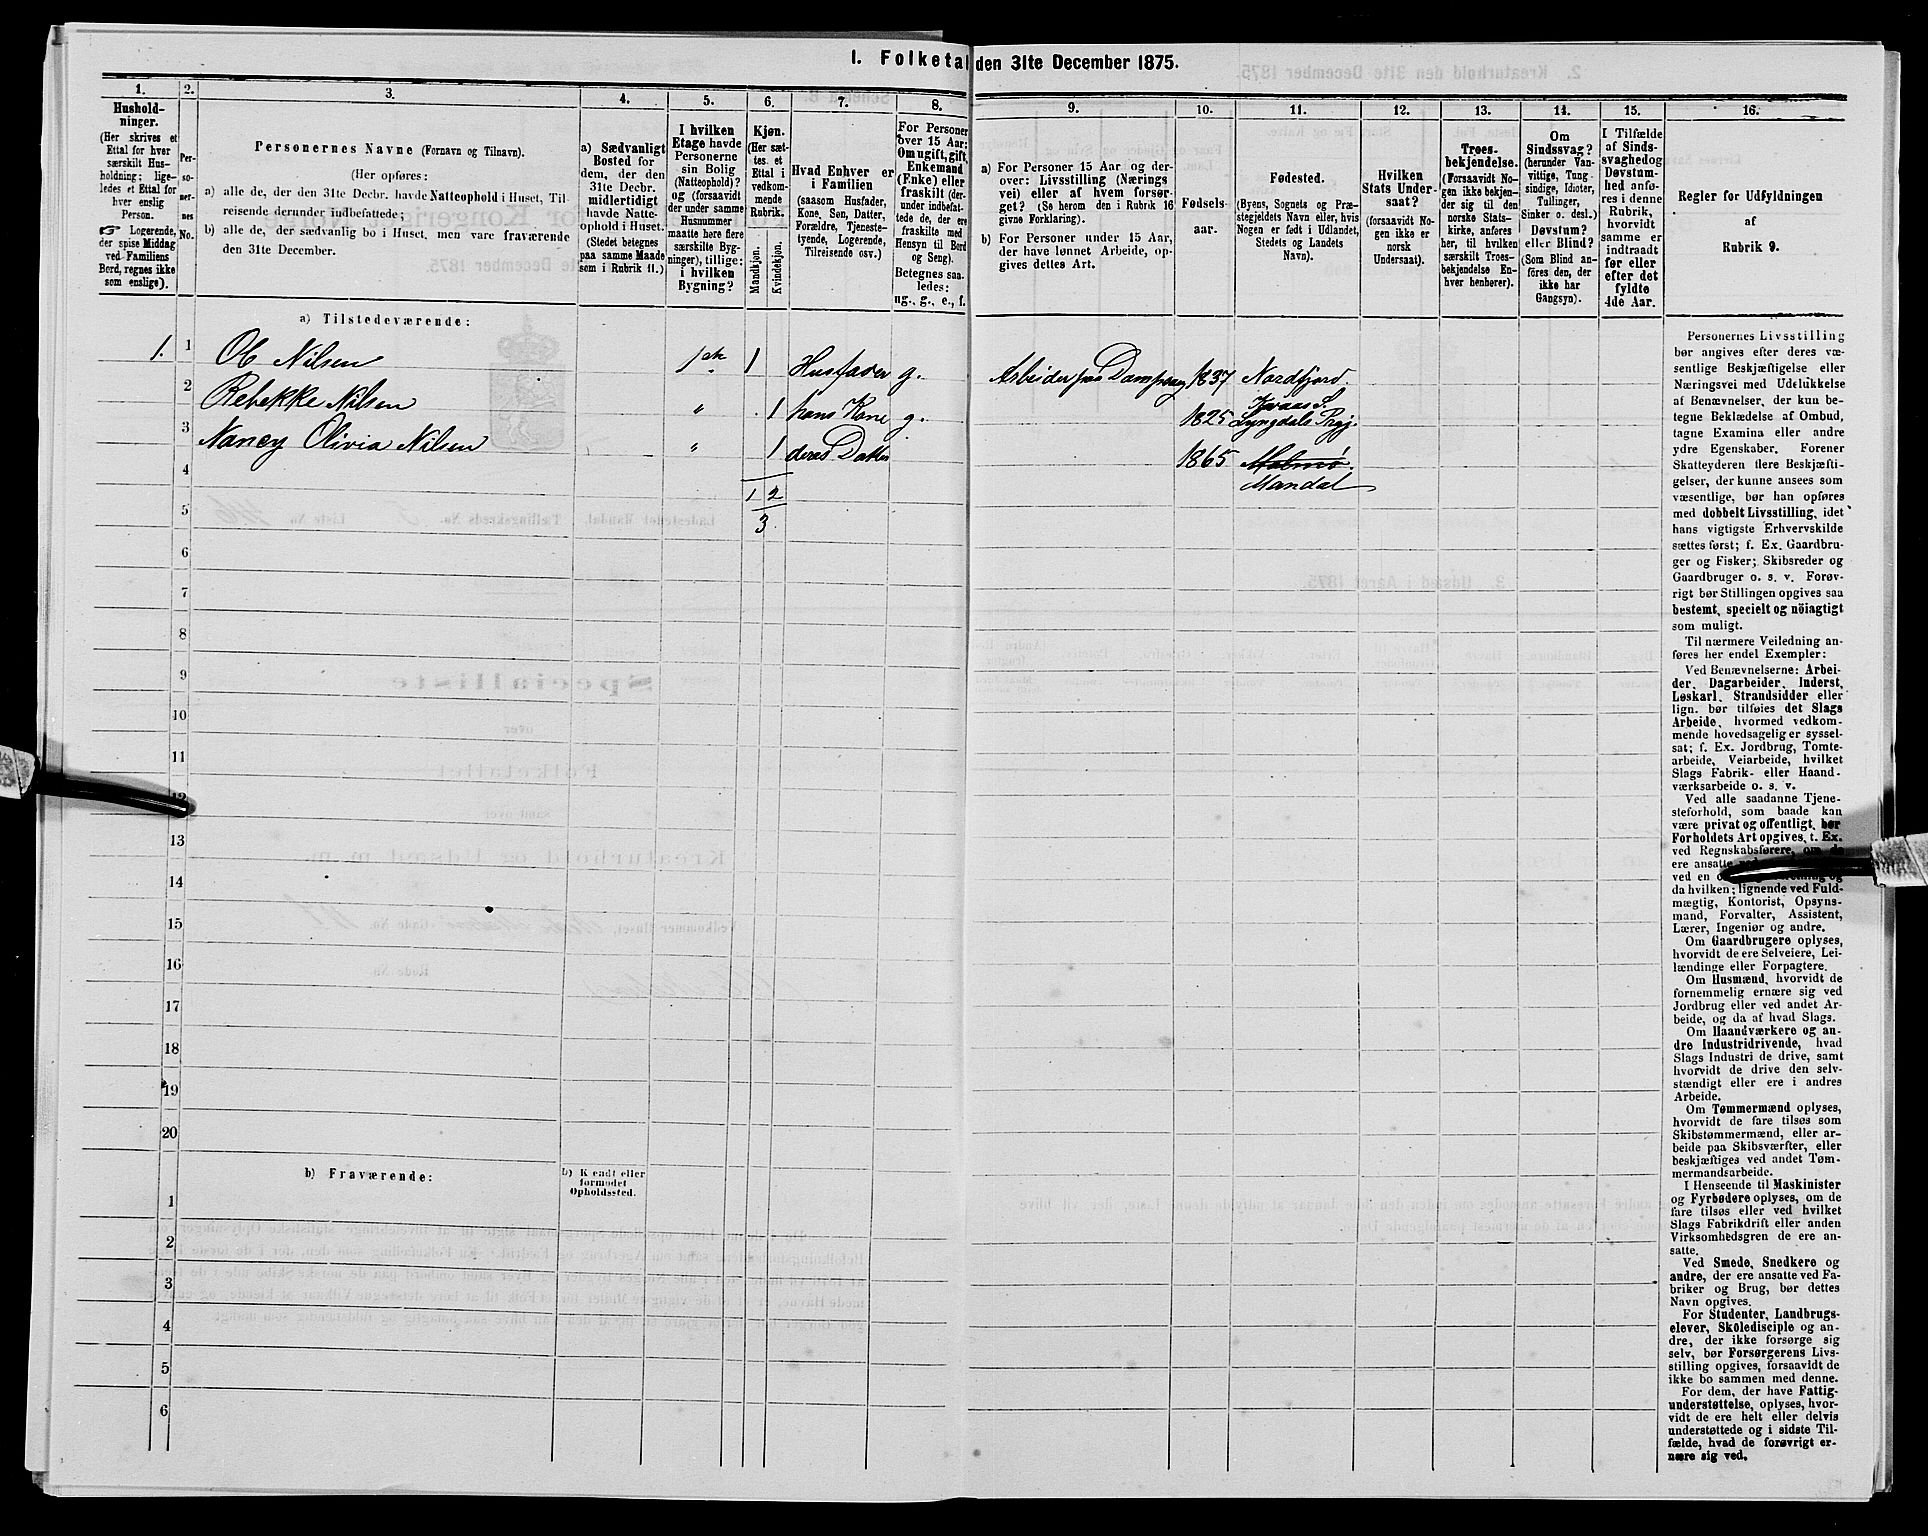 1. Folketal den 31te December 1875.
1.
Hushold-
ninger.
(Her skrives et
Ettal for hver
særskilt Hus-
holdning; lige-
ledes et Ettal for
hver enslig
Person.
☞ Logerende,
der spise Middag
ved Familiens
Bord, regnes ikke
som enslige).
2.
Per-
so-
ner-
nes
No.
3.
Personernes Navne (Fornavn og Tilnavn).
(Her opføres:
a) alle de, der den 31te Decbr. havde Natteophold i Huset, Til-
reisende derunder indbefattede;
b) alle de, der sædvanlig bo i Huset, men vare fraværende
den 31te December.
4.
a) Sædvanligt
Bosted for
dem, der den
31te Decbr.
midlertidigt
havde Natte-
ophold i Huset.
(Stedet betegnes
paa samme Maade
som i Rubrik 11.)
5.
I hvilken
Etage havde
Personerne
sin Bolig
(Natteophold)?
og (forsaavidt
der under samme
Husnummer
maatte høre flere
særskilte Byg-
ninger), tillige:
i hvilken
Bygning?
6.
Kjøn.
(Her sæt-
tes et
Ettal i
vedkom-
mende
Rubrik.
Mandkjøn.
Kvindekjøn.
7.
Hvad Enhver er
i Familien
(saasom Husfader,
Kone, Søn, Datter,
Forældre, Tjeneste-
tyende, Logerende,
Tilreisende osv.)
8.
For Personer
over 15 Aar:
Om ugift, gift,
Enkemand
(Enke) eller
fraskilt (der-
under indbefat-
tede de, der ere
fraskilte med
Hensyn til Bord
og Seng).
Betegnes saa-
ledes:
ug., g., e., f.
9.
a) For Personer 15 Aar og der-
over: Livsstilling (Nærings
vei) eller af hvem forsør-
get? (Se herom den i Rubrik 16
givne Forklaring).
b) For Personer under 15 Aar,
der have lønnet Arbeide, op-
gives dettes Art.
10.
Fødsels-
aar.
11.
Fødested.
(Byens, Sognets og Præ-
stegjeldets Navn eller, hvis
Nogen er født i Udlandet,
Stedets og Landets
Navn).
12.
Hvilken
Stats Under-
saat?
(forsaavidt No-
gen ikke er
norsk
Undersaat).
13.
Troes-
bekjendelse.
(Forsaavidt No-
gen ikke bekjen-
der sig til den
norske Stats-
kirke, anføres
her, til hvilken
særskilt Troes-
bekjendelse En-
hver henhører).
14.
Om
Sindssvag?
(herunder Van-
vittige, Tung
sindige, Idioter,
Tullinger,
Sinker o. desl.)
Døvstum?
eller Blind?
(Som Blind an-
føres den, der
ikke har
Gangsyn).
15.
I Tilfælde
af Sinds-
svaghed og
Døvstum-
hed anfø-
res i denne
Rubrik,
hvorvidt
samme er
indtraadt
før eller
efter det
fyldte
4de Aar.
16.
Regler for Udfyldningen
af
Rubrik 9.
a) Tilstedeværende:
1. 1 Ole Nilsen 1ste 1 Husfader g. Arbeider paa Dampsag 1837 Nordfjord.
2 Rebekke Nilsen " 1 hans Kone g. 1825 Kvaas S. Lyngdals Prgj.
3 Nancy Olivia Nilsen " 1 deres Datter 1865 Malmø.
Mandal
4
1 2
5
3.
6
7
8
9
10
11
12
13
14
15
16
17
18
19
20
b) Fraværende:
b) Kendt eller
formodet
Opholdssted.
1
2
3
4
5
6
Personernes Livsstilling
bør angives efter deres væ-
sentlige Beskjæftigelse eller
Næringsvei med Udelukkelse
af Benævnelser, der kun be-
tegne Beklædelse af Ombud,
tagne Examina eller andre
ydre Egenskaber. Forener
Skatteyderen flere Beskjæfti-
gelser, der kunne ansees som
væsentlige, bør han opføres
med dobbelt Livsstilling, idet
hans vigtigste Erhvervskilde
sættes først; f. Ex. Gaardbru-
ger og Fisker; Skibsreder og
Gaardbruger o. s. v. Forøv-
rigt bør Stillingen opgives saa
bestemt, specielt og nöiagtigt
som muligt.
Til nærmere Veiledning an-
føres her endel Exempler:
Ved Benævnelserne: Arbei-
der, Dagarbeider, Inderst,
Løskarl, Strandsidder eller
lign. bør tilføies det Slags
Arbeide, hvormed vedkom-
mende hovedsagelig er syssel-
sat; f. Ex. Jordbrug, Tomte-
arbeide, Veiarbeide, hvilket
Slags Fabrik- eller Haand-
værksarbeide o. s. v.
Ved alle saadanne Tjene-
steforhold, som baade kan
være privat og offentligt, bør
Forholdets Art opgives, t. Ex.
ved Regnskabsførere, om de
ere ansatte
ved en
da hvilken; lignende ved Fuld-
mægtig, Kontorist, Opsyns-
mand, Forvalter, Assistent,
Lærer, Ingeniør og andre.
Om Gaardbrugere oplyses,
hvorvidt de ere Selveiere, Lei-
lændinge eller Forpagtere.
Om Husmænd, hvorvidt de
fornemmelig ernære sig ved
Jordbrug eller ved andet Ar-
beide, og da af hvad Slags.
Om Haandværkere og an-
dre Industridrivende, hvad
Slags Industri de drive, samt
hvorvidt de drive den selv-
stændigt eller ere i andres
Arbeide.
Om Tømmermænd oplyses,
hvorvidt de fare tilsøs som
Skibstømmermænd, eller ar-
beide paa Skibsværfter, eller
beskjæftiges ved andet Tøm-
mermandsarbeide.
I Henseende til Maskinister
og Fyrbødere oplyses, om de
fare tilsøs eller ved hvilket
Slags Fabrikdrift eller anden
Virksomhedsgren de ere an-
satte.
Ved Smede, Snedkere og
andre, der ere ansatte ved Fa-
briker og Brug, bør dettes
Navn opgives.
For Studenter, Landbrugs-
elever, Skoledisciple og an-
dre, der ikke forsørge sig
selv, bør Forsørgerens Livs-
stilling opgives, forsaavidt de
ikke bo sammen med denne.
For dem, der have Fattig-
understøttelse, oplyses, hvor-
vidt de ere helt eller delvis
understøttede og i sidste Til-
fælde, hvad de forøvrigt er-
nære sig ved.